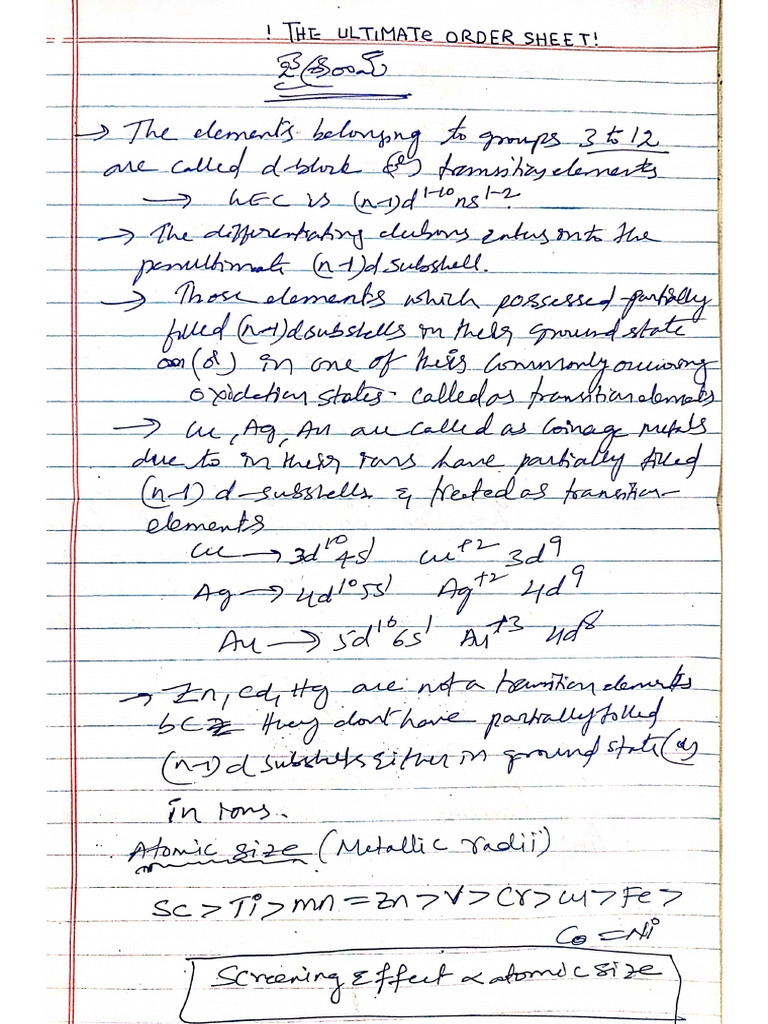 ! THE ULTIMATE ORDER SHEET!
జై శ్రీరామ్
→ The elements belonging to groups 3 to 12
are called d-block (or) transition elements
→ GEC is (n-1)d¹⁻¹⁰ ns¹⁻²
→ The differentiating electrons enters into the
penultimate (n-1)d subshell.
→ Those elements which possessed partially
filled (n-1)d subshells in their ground state
(or) in one of their commonly occuring
oxidation states - called as transition elements
→ Cu, Ag, Au are called as coinage metals
due to in their ions have partially filled
(n-1) d-subshells & treated as transition-
elements
Cu → 3d¹⁰4s¹ Cu⁺² 3d⁹
Ag → 4d¹⁰5s¹ Ag⁺² 4d⁹
Au → 5d¹⁰6s¹ Au⁺³ 4d⁸
→ Zn, Cd, Hg are not a transition elements
bcz they dont have partially filled
(n-1) d subshells either in ground state (or)
in ions.
Atomic size (Metallic radii)
Sc > Ti > mn = Zn > V > Cr > Cu > Fe >
Co = Ni
Screening Effect ∝ atomic size